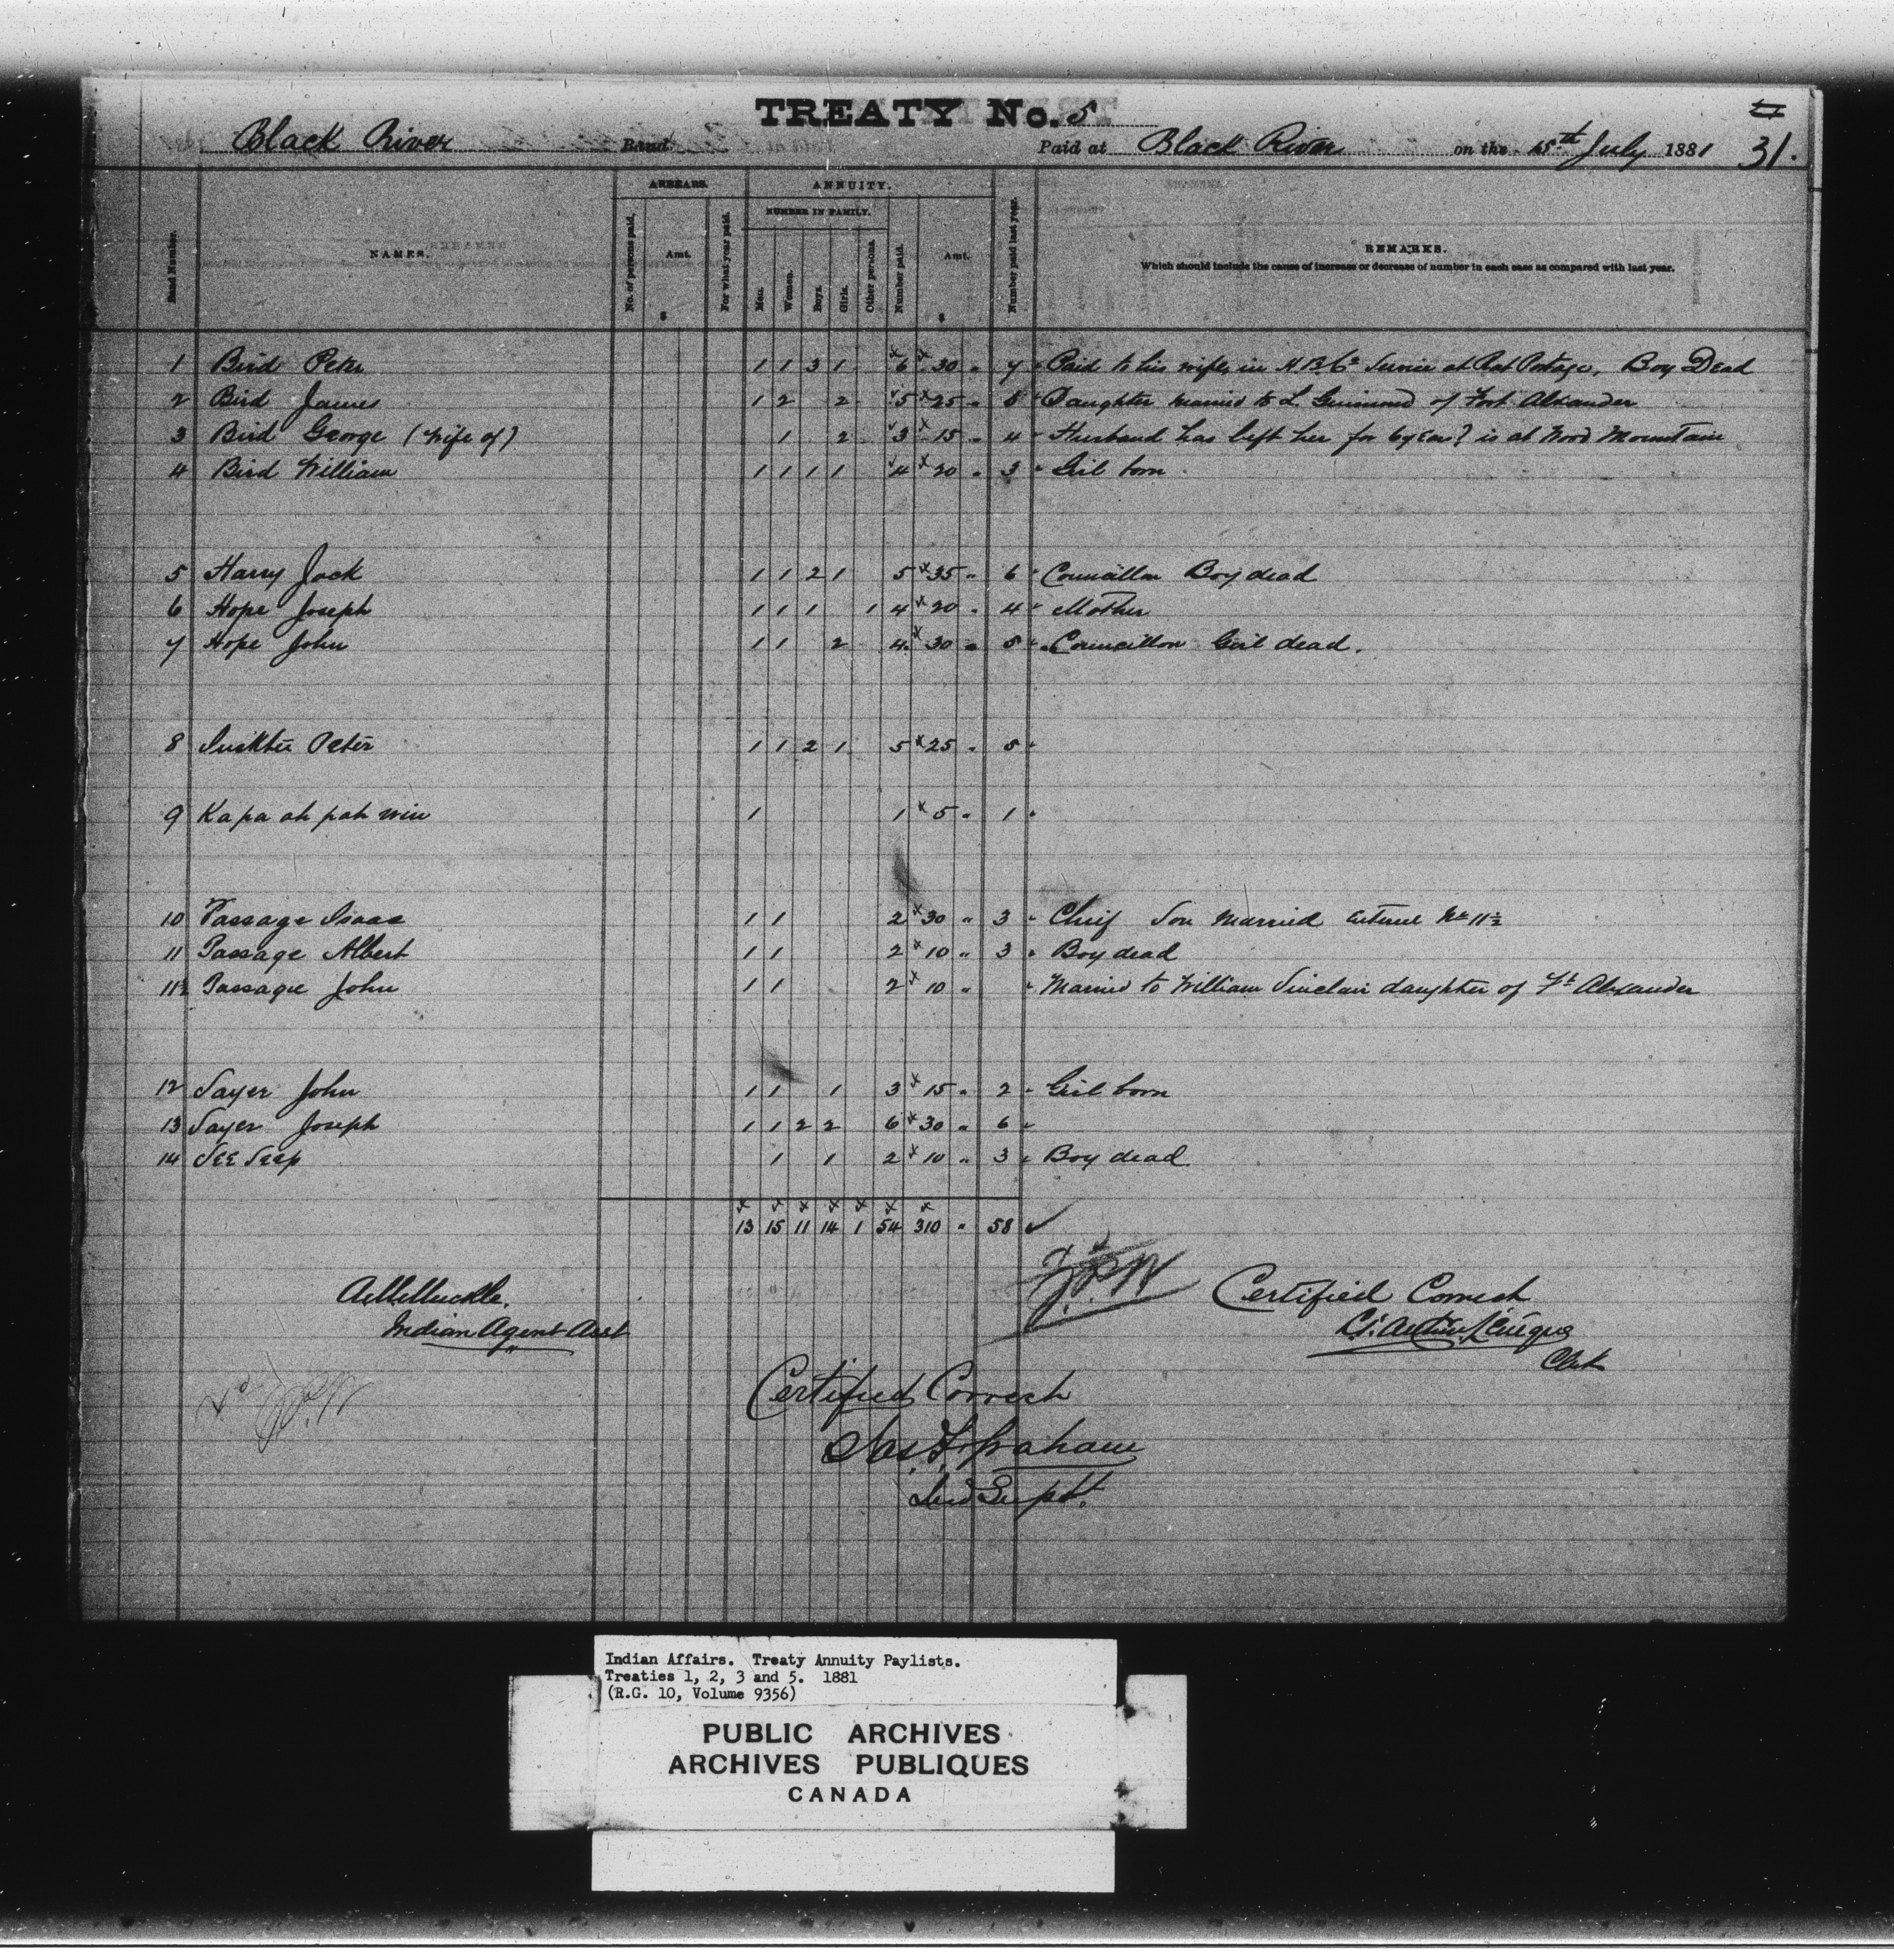 TREATY No. 5
31.
Black River Band Paid at Black River on the 15th July 1881
Band Number.
NAMES.
ARREARS.
No. of persons paid.
Amt.
$
For what year paid.
ANNUITY.
NUMBER IN FAMILY.
Men.
Women.
Boys.
Girls.
Other persons.
Number paid.
Amt.
$
Number paid last year.
REMARKS.
Which should include the cause of increase or decrease of number in each case as compared with last year.
1 Bird Peter 1 1 3 1 6 30 " 7 Paid to his wife, in H.B.Co Service at Rat Portage, Boy Dead
2 Bird James 1 2 2 5 25 " Daughter married to L. Guimond of Fort Alexander
3 Bird George (Wife of) 1 2 3 15 " 4 Husband has left her for 6 years is at Wood Mountain
4 Bird William 1 1 1 1 4 20 " 3 Girl born
5 Harry Jack 1 1 2 1 5 35 " 6 Councillor Boy dead
6 Hope Joseph 1 1 1 1 4 20 " 4 Mother
7 Hope John 1 1 2 4 30 " 5 Councillor Girl dead.
8 Peter 1 1 2 1 5 25 " 5
9 Kapa ah pah win 1 1 5 " 1
10 Passage Isaac 1 1 2 30 " 3 Chief Son married No 11½
11 Passage Albert 1 1 2 10 " 3 Boy dead
11½ Passage John 1 1 2 10 " Married to William Sinclair daughter of Ft Alexander
12 Sayer John 1 1 1 3 15 " 2 Girl born
13 Sayer Joseph 1 1 2 2 6 30 " 6
14 See Seep 1 1 2 10 " 3 Boy dead
13 15 11 14 1 54 310 " 58
Indian Agent Asst
J.P.W
Certified Correct
Clerk
Certified Correct
Jas. F. Graham
Ind Supt.
Indian Affairs. Treaty Annuity Paylists.
Treaties 1, 2, 3 and 5. 1881
(R.G. 10, Volume 9356)
PUBLIC ARCHIVES
ARCHIVES PUBLIQUES
CANADA